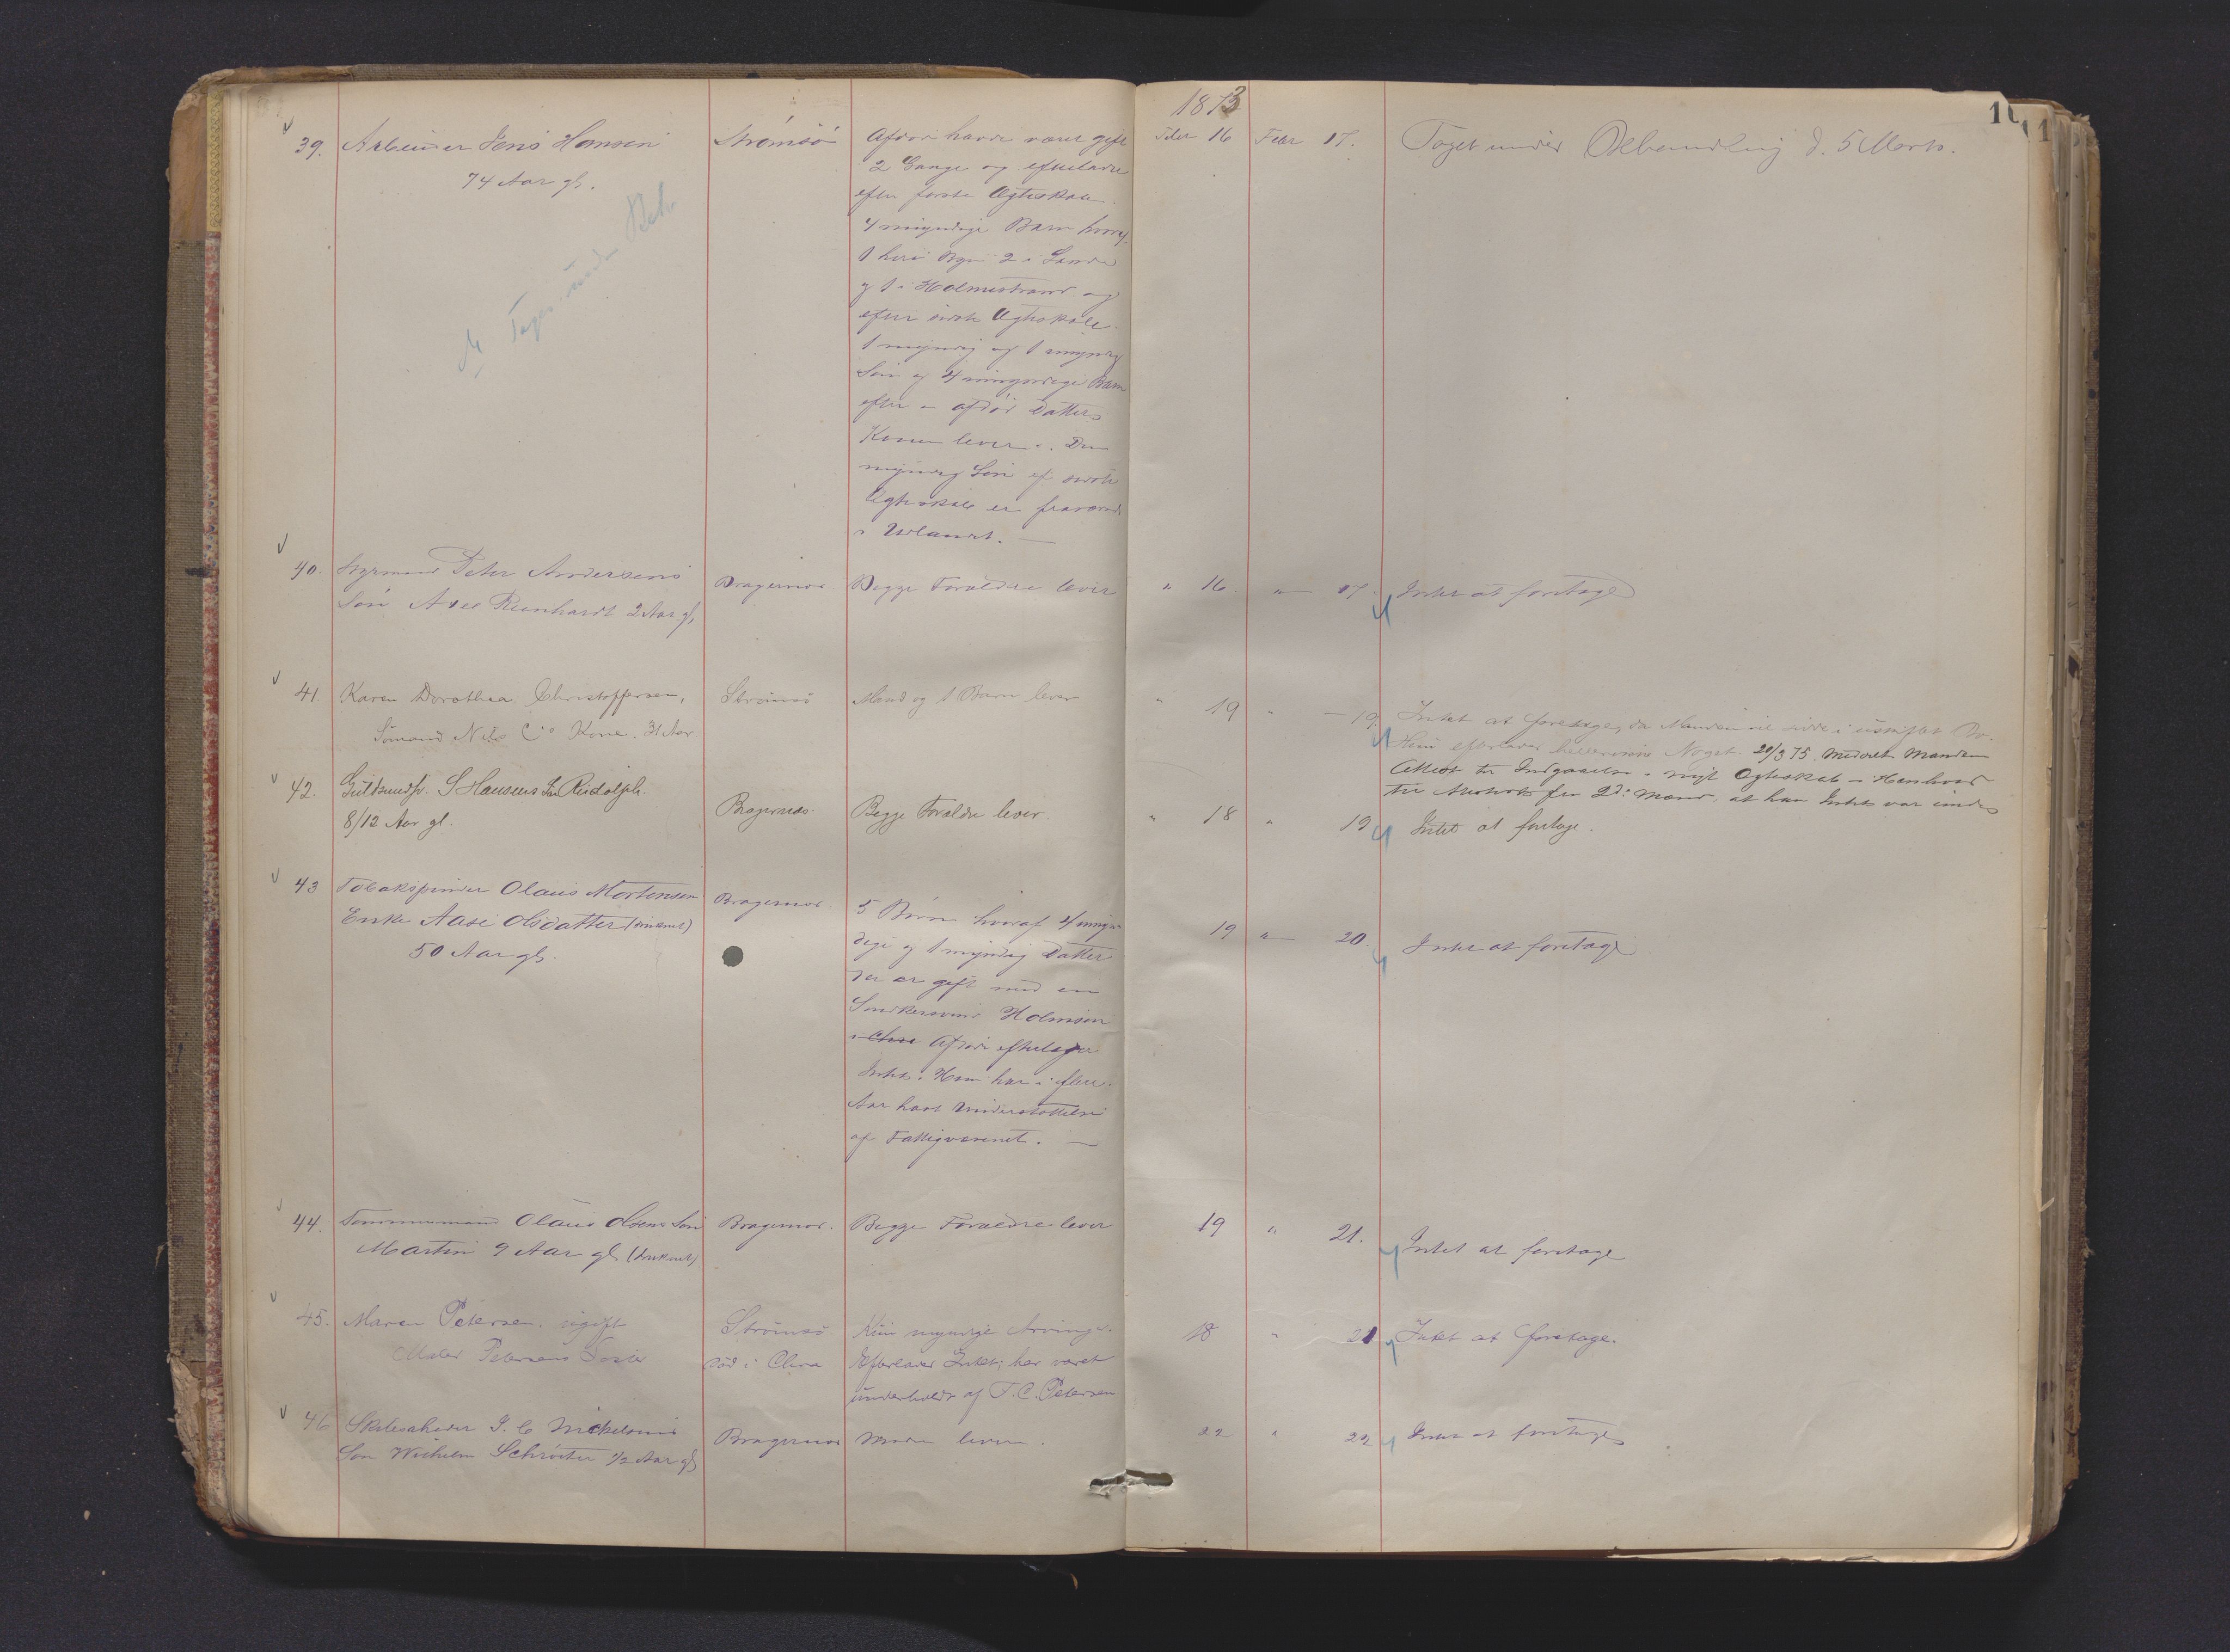 1873
10
39. Arbeider Jens Hansen
74 Aar gl.
Strömsö
Afdøde havde været gift
2 Gange og efterlader
efter første Ægteskab
4 myndige Børn hvoraf
1 her i Byen 2 i Sande
og 1 i Holmestrand og
efter sidste Ægteskab
1 myndig og 1 umyndig
Søn og 4 umyndige Børn
efter en afdød Datter
Konen lever. Den
myndig Søn af sidste
Ægteskab er fraværende
i Udlandet. —
Febr 16 Febr 17.
Taget under Behandling d. 5 Marts.
Tages under Beh
40. Styrmand Peter Andersens
Søn Axel Reinhardt 2 Aar gl,
Bragernæs
Begge Forældre lever
" 16. " 17.
Intet at foretage
41. Karen Dorothea Christoffersen,
Sömand Nils C's Kone. 31 Aar
Strömsö
Mand og 1 Barn lever
" 19 " 19
Intet at foretage, da Manden vil sidde i uskiftet Bo.
Hun efterlader hellerikke Noget. 20/3 75 meddelt Manden
Attest til Indgaaelse i nyt Ægteskab i Henhold
til Attest fra 2de Mænd, at han Intet var eiende
42. Guldsmedsv. S Hansens Sn Rudolph
8/12 Aar gl.
Bragernæs.
Begge Forældre lever
" 18 " 19
Intet at foretage.
43 Tobakspinder Olaus Mortensen
Enke Aase Olsdatter (druknet)
50 Aar gl.
Bragernæs.
5 Børn hvoraf 4 umyn-
dige og 1 myndig Datter
der er gift med en
Snedkersvend Holmsen
i Chra Afdøde efterlader
Intet. Hun har i flere
Aar havt Understøttelse
af Fattigvæsenet. —
19 " 20.
Intet at foretage
44. Tømmermand Olaus Olsens Søn
Martin 9 Aar gl. (druknet)
Bragernæs.
Begge Forældre lever
19 " 21.
Intet at foretage
45. Maren Petersen, ugift
Maler Petersens Søster
Strömsö
död i Chra
Kun myndige Arvinger.
Efterlader Intet; har været
underholdt af T. C. Petersen
18 " 21
Intet at foretage.
46 J. C. Michelsens
Søn Wilhelm Schröeter 1/2 Aar gl
Bragernæs
Moder lever.
22 " 22
Intet at foretage